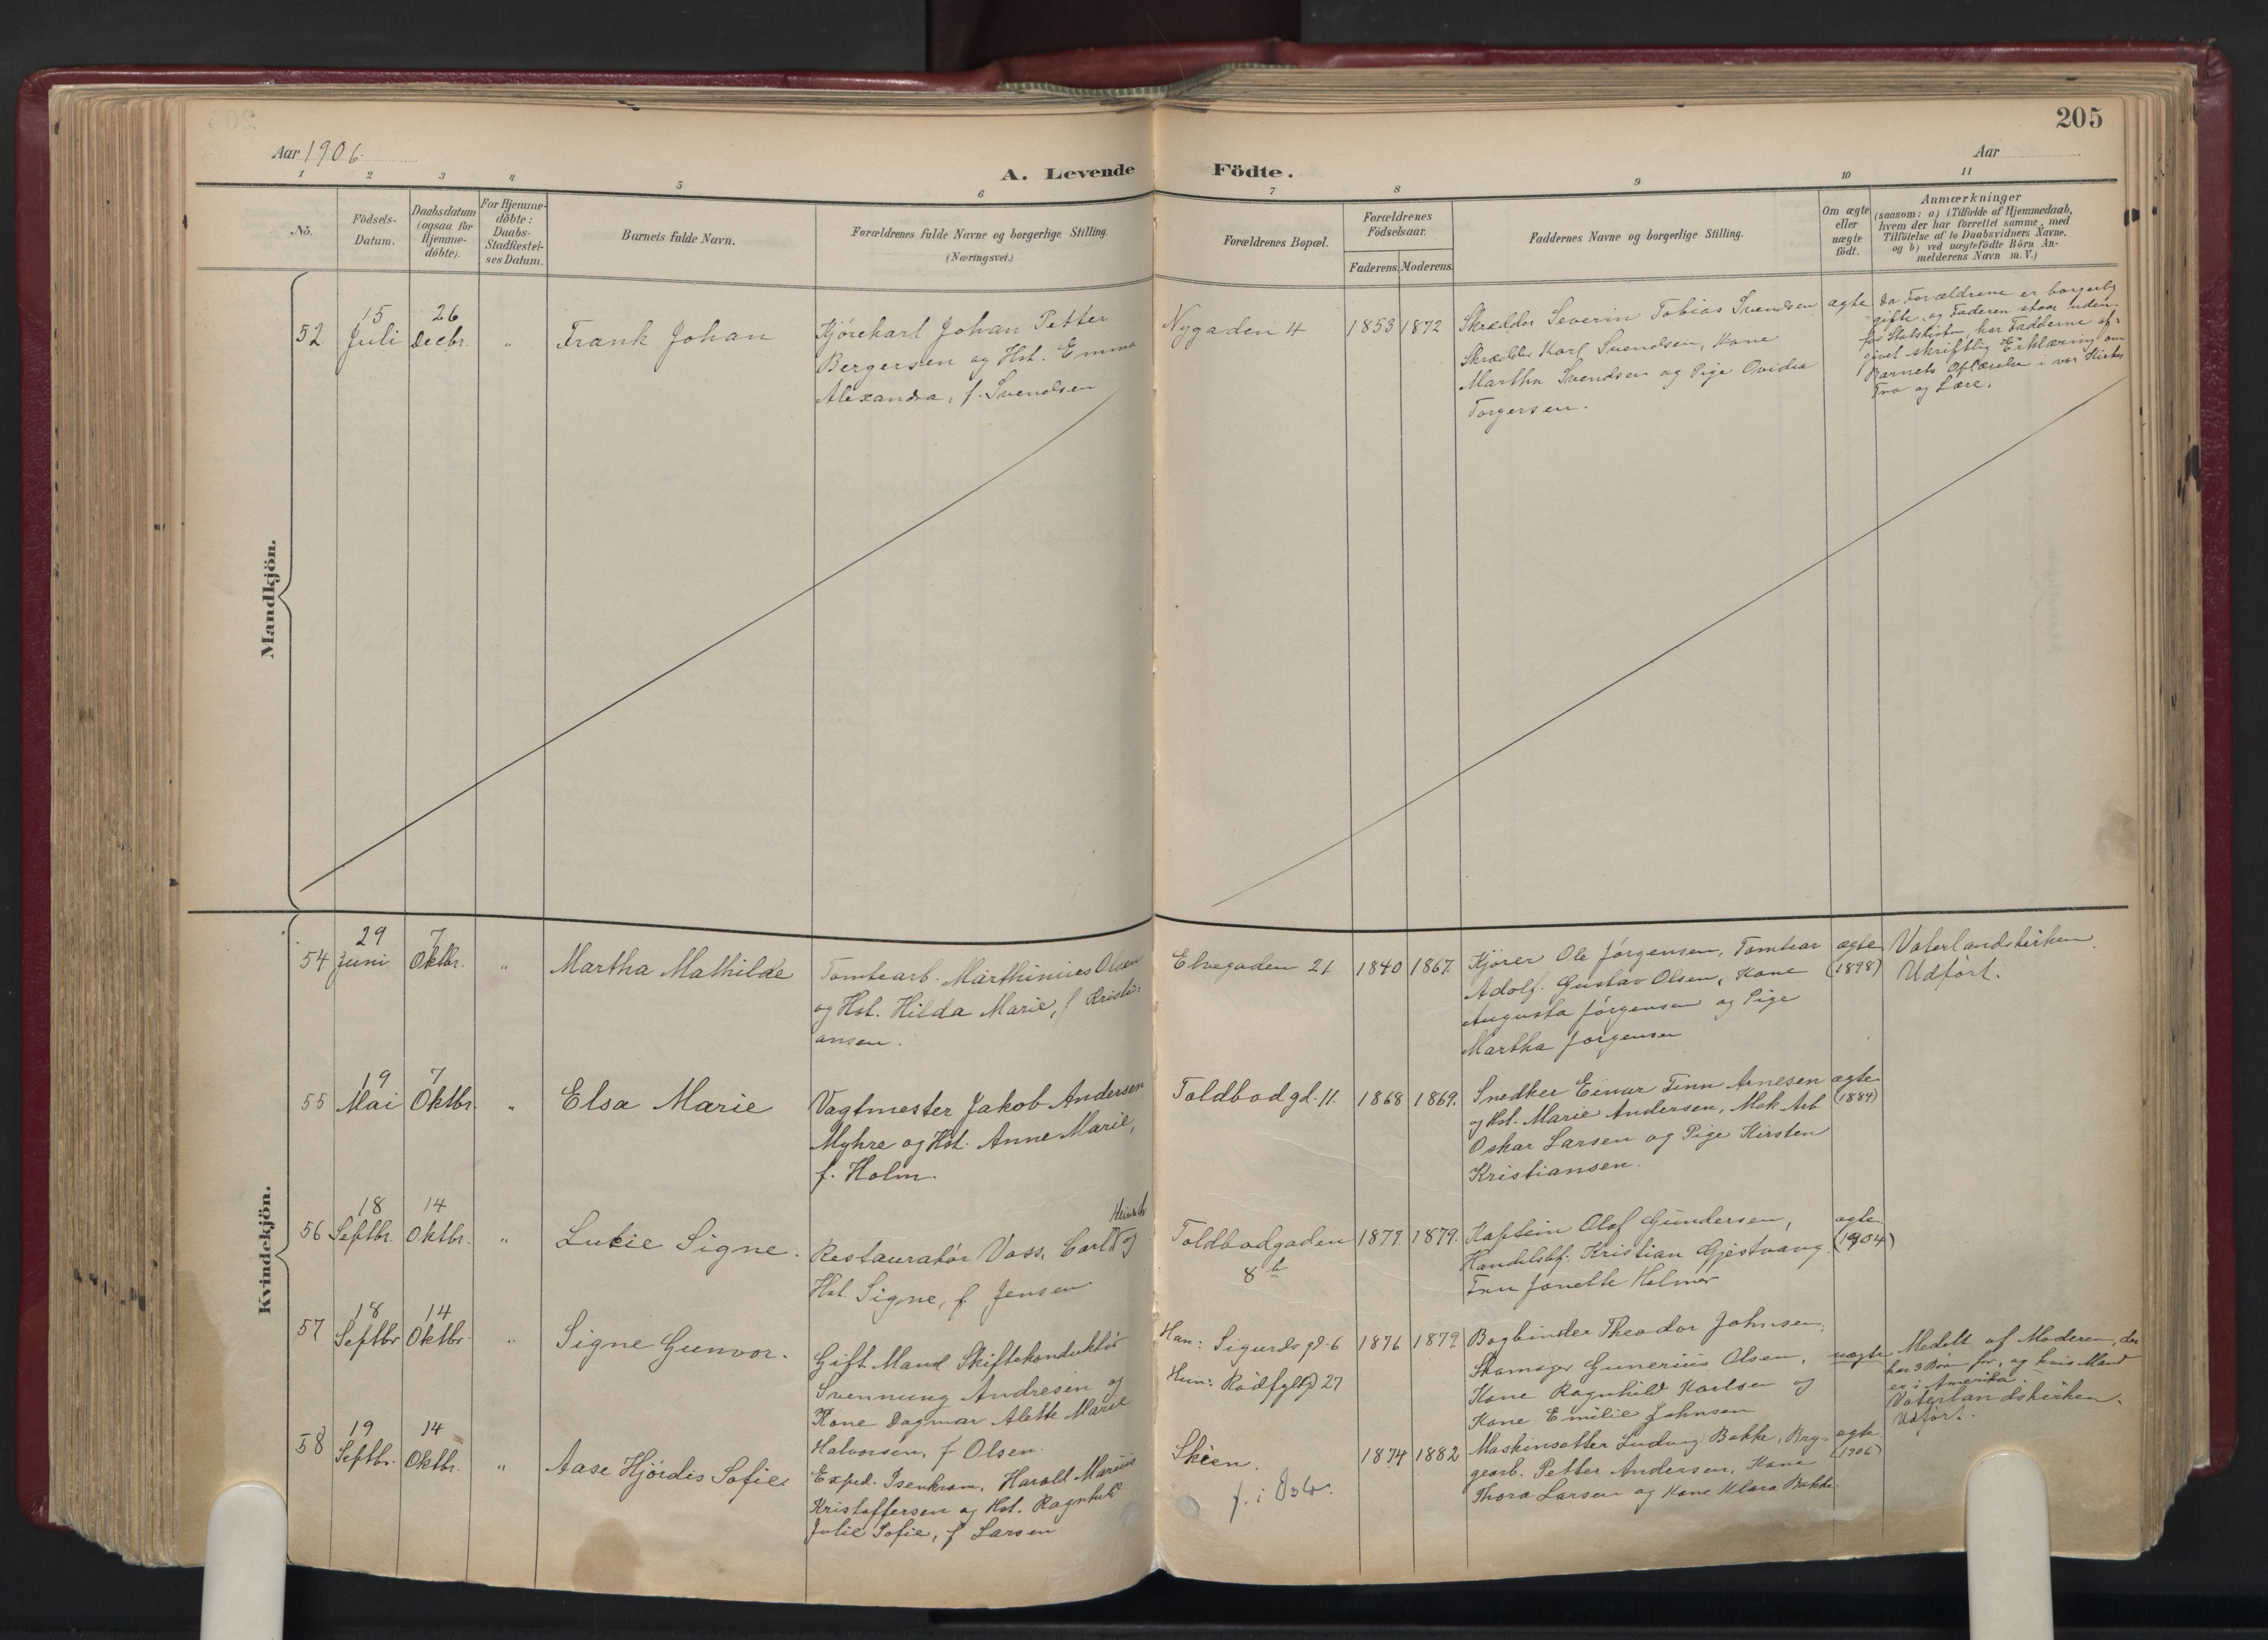 205
Aar 1906
Aar
A. Levende Födte.
1 2 3 4 5 6 7 8 9 10 11
No.
Födsels-
Datum.
Daabsdatum
(ogsaa for
Hjemme-
döbte).
For Hjemme-
döbte:
Daabs-
Stadfæstel-
ses Datum.
Barnets fulde Navn.
Forældrenes fulde Navne og borgerlige Stilling.
(Næringsvei.)
Forældrenes Bopæl.
Forældrenes
Födselsaar.
Faderens. Moderens.
Faddernes Navne og borgerlige Stilling.
Om ægte
eller
uægte
födt.
Anmærkninger
(saasom: a) i Tilfælde af Hjemmedaab,
hvem der har forrettet samme, med
Tilföielse af to Daabsvidners Navne.
og b) ved uægtefödte Börn An-
melderens Navn m. V.)
Mandkjön.
52
15
Juli
26
Decbr.
"
Frank Johan
Kjörekarl Johan Petter
Bergersen og Hst. Emma
Alexandra, f. Svendsen
Nygaden 4
1853 1872
Skrædder Severin Tobias Svendsen
Skrædder Karl Svendsen, Kone
Martha Svendsen og Pige Ovidia
Torgersen.
ægte
Da Forældrene er borgerlig
gifte, og Faderen staar uden-
for Statskirken, har Fadderne af-
givet skriftlig Erklæring om
Barnets Oplærelse i vor Kirkes
Tro og Lære.
Kvindekjön.
54
29
Juni
7
Oktbr.
"
Martha Mathilde
Tomtearb. Marthinius Olsen
og Hst. Hilda Marie, f Kristi-
ansen.
Elvegaden 21
1840 1867.
Kjörer Ole Jörgensen, Tomtear
Adolf Gustav Olsen, Kone
Augusta Jörgensen og Pige
Martha Jörgensen
ægte
(1898)
Vaterlandskirken.
Udfört.
55
19
Mai
7
Oktbr.
"
Elsa Marie
Vagtmester Jakob Andersen
Myhre og Hst. Anne Marie,
f. Holm.
Toldbodgd. 11.
1868 1869.
Snedker Einar Finn Arnesen
og Hst. Marie Andersen, Mek Arb
Oskar Larsen og Pige Kirsten
Kristiansen.
ægte
(1884)
56
18
Septbr.
14
Oktbr.
"
Lukie Signe.
Restauratör Voss, Carl Henrik og
Hst. Signe, f. Jensen
Toldbodgaden
8 b
1877. 1879.
Kaptein Olaf Gundersen,
Handelsbf. Kristian Gjestvang.
Fru Janette Holmer
ægte
(1904)
57
18
Septbr
14
Oktbr.
"
Signe Gunvor.
Gift Mand Skiftekonduktör
Svennung Andresen og
Kone Dagmar Alette Marie
Halvorsen, f Olsen.
Han: Sigurds gd. 6
Hun: Rödfyldg 27
1876 1879
Bogbinder Theodor Johnsen,
Skomager Gunerius Olsen,
Kone Ragnhild Karlsen og
Kone Emilie Johnsen
uægte
Medelt af Moderen, der
har 3 Börn för, og hvis Mand
er i Amerika.
Vaterlandskirken.
Udfört.
58
19
Septbr.
14
Oktbr.
"
Aase Hjördis Sofie
Exped. Isenkram, Harald Marius
Kristoffersen og Hst. Ragnhild
Julie Sofie, f Larsen
Skien.
f. i Oslo.
1874 1882
Maskinsætter Ludvig Bakke, Bryg-
gearb. Petter Andersen, Kone
Thora Larsen og Kone Klara Bakke.
ægte
(1906)